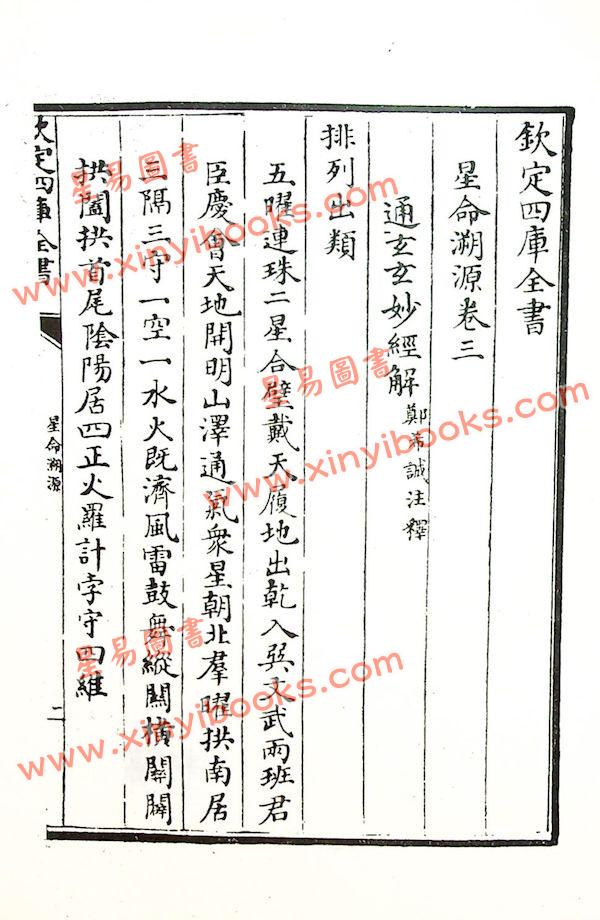 欽定四庫全書
星命溯源卷三
通玄玄妙經解 鄭希誠注釋
排列出類
五曜連珠二星合璧戴天履地出乾入巽文武兩班君
臣慶會天地開明山澤通氣衆星朝北羣曜拱南居
三隔三守一空一水火既濟風雷鼓舞縱關橫關關
拱闔拱首尾陰陽居四正火羅計孛守四維
欽定四庫全書
星命溯源
二
星易圖書
www.xinyibooks.com
星易圖書
www.xinyibooks.com
星易圖書
www.xinyibooks.com